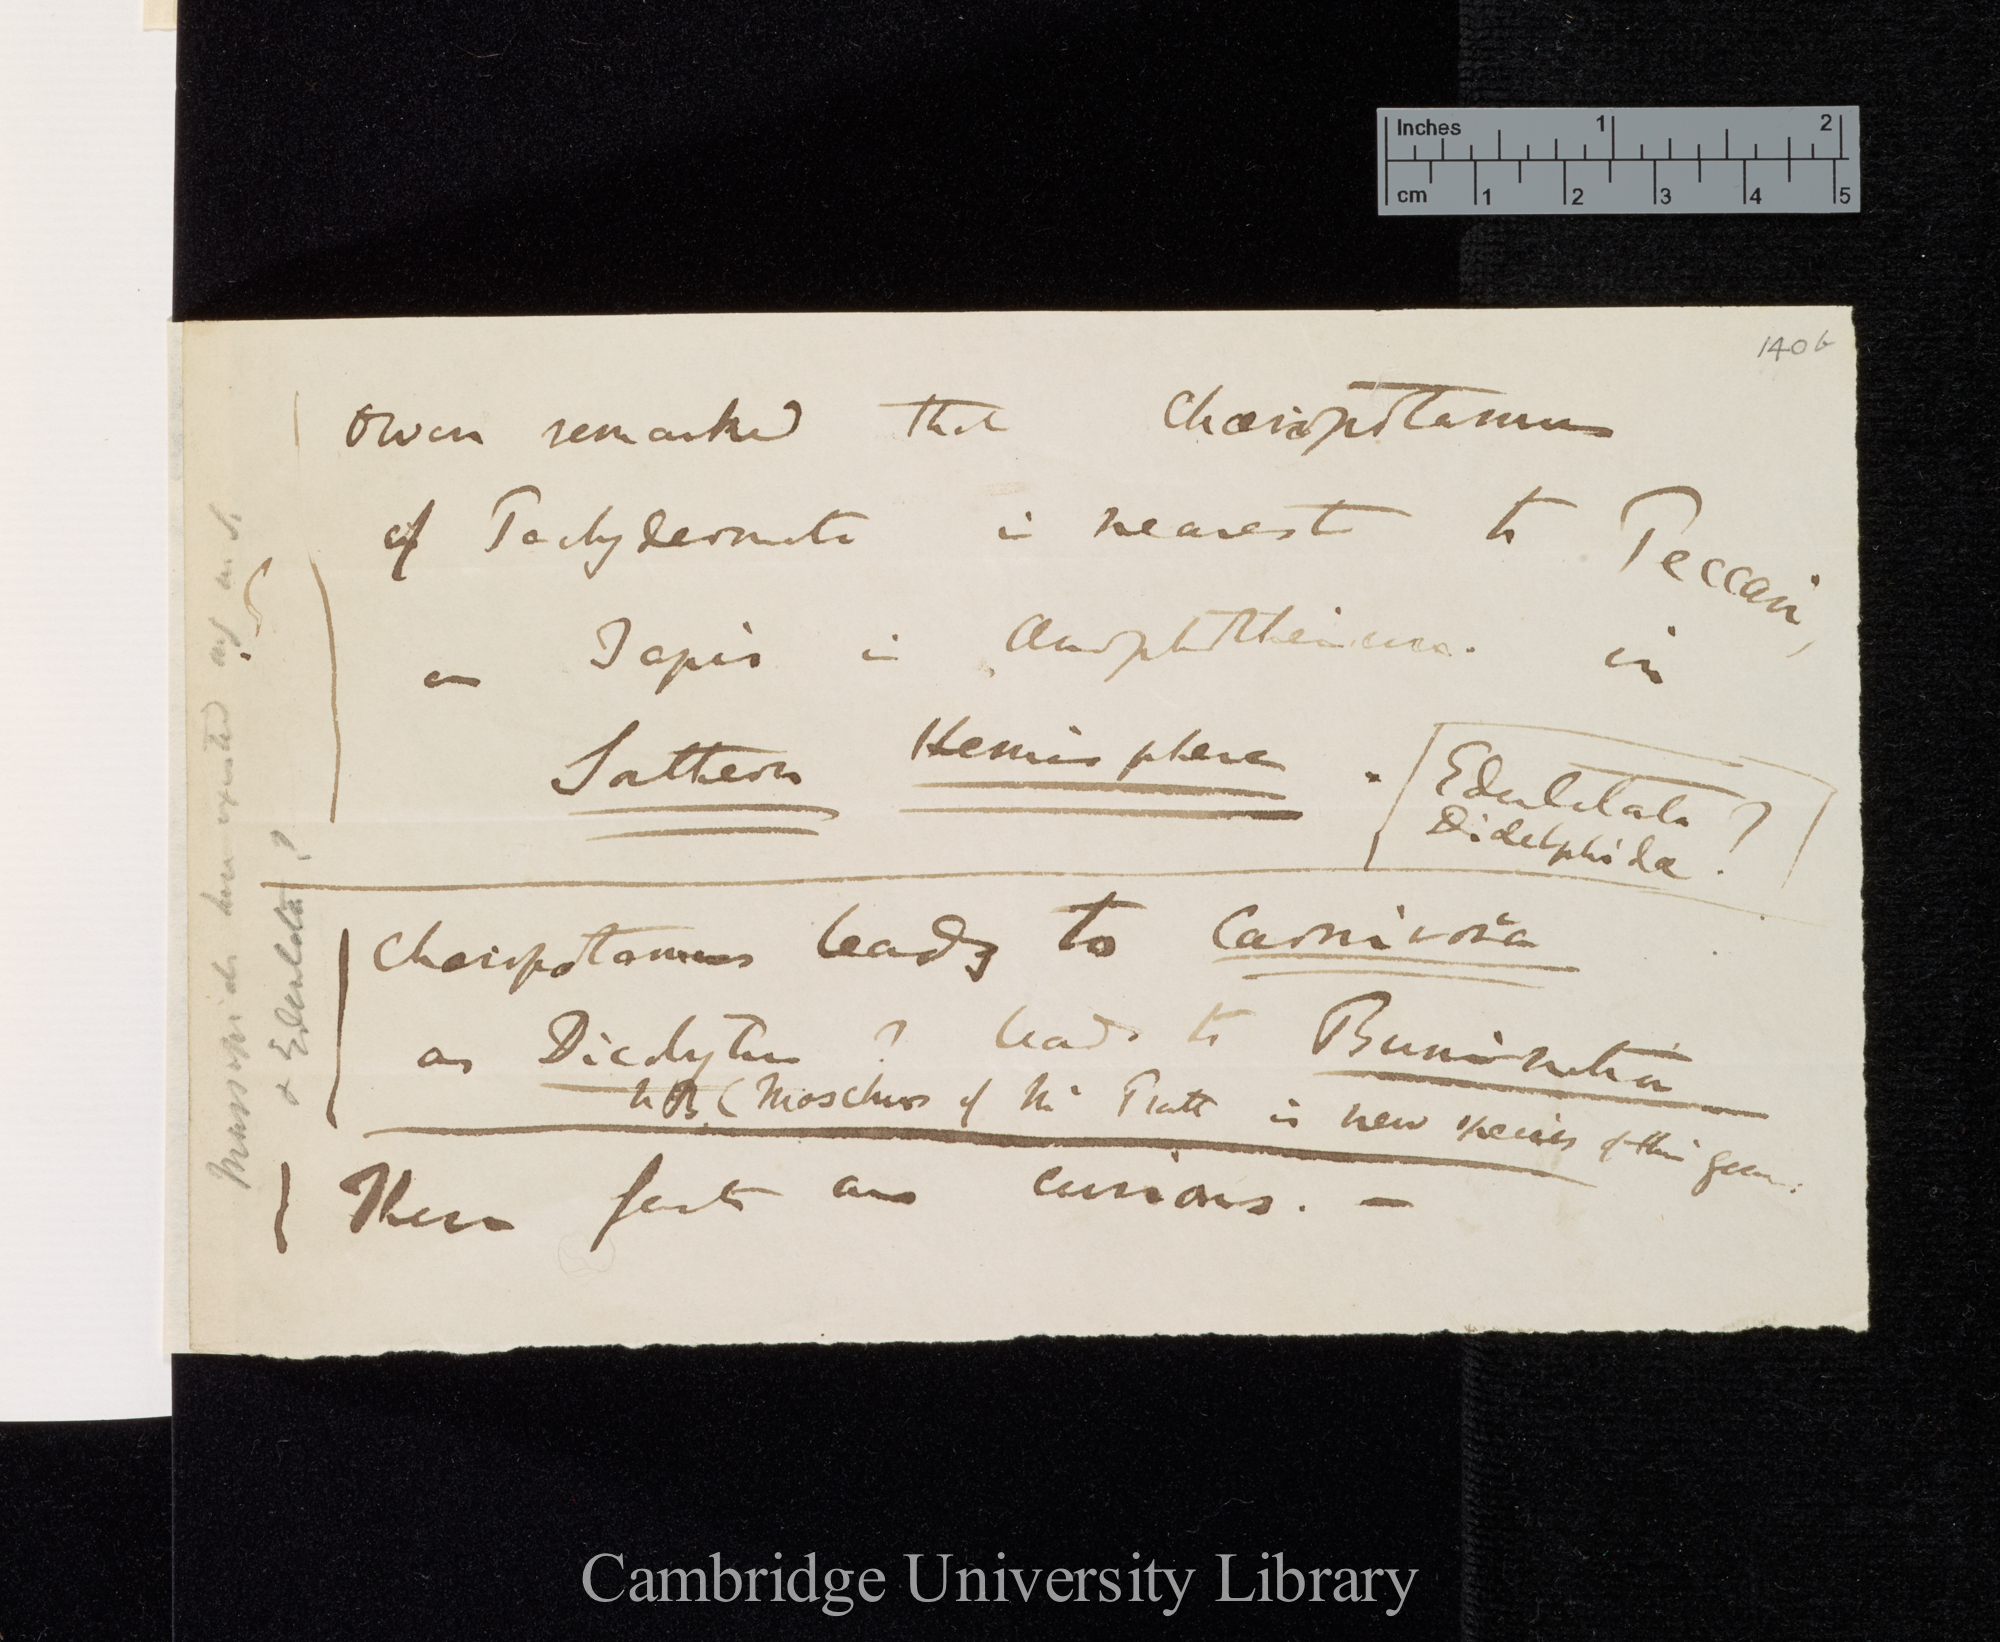 Inches 1 2
cm 1 2 3 4 5
140b
Owen remarked that Chæriopotamus
of Pachydermata is nearest to Peccari,
as Tapir is in
Southern Hemisphere . [Edentata ?
Didelphidæ . ]
Chæropotamus leads to Carnivora
as Dicotyles ? leads to Ruminantia
NB. (Moschus of Mr Pratt is new species of this genus.
These facts are curious. —
Marsupials
& Edentata?
Cambridge University Library